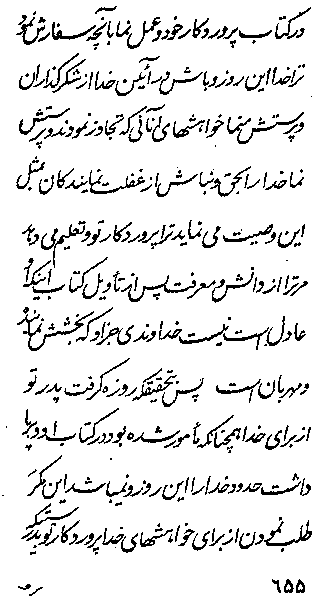 در کتاب پروردگار خود و عمل نما بآنچه سفارش نمو
ترا خدا این روز و باش در آئین خدا از شکرگذاران
و پرستش منما خواهشهای آنانی که تجاوز نمودند و پرستش
نما خدا را بحق و نباش از غفلت نمایندکان بمثل
این وصیت می نماید ترا پروردکار تو و تعلیم می دهد
مرترا از دانش و معرفت پس از تأویل کتاب اینکه او
عادل است نیست خداوندی جز او که بخشش نماینده
و مهربان است پس بتحقیقکه روزه گرفت پدر تو
از برای خدا همچنانکه مأمور شده بود در کتاب او و بپا
داشت حدود خدا را این روز و نمیباشد این مکر
طلب نمودن از برای خواهشهای خدا پروردکار تو بدرستیکه
۶۵۵